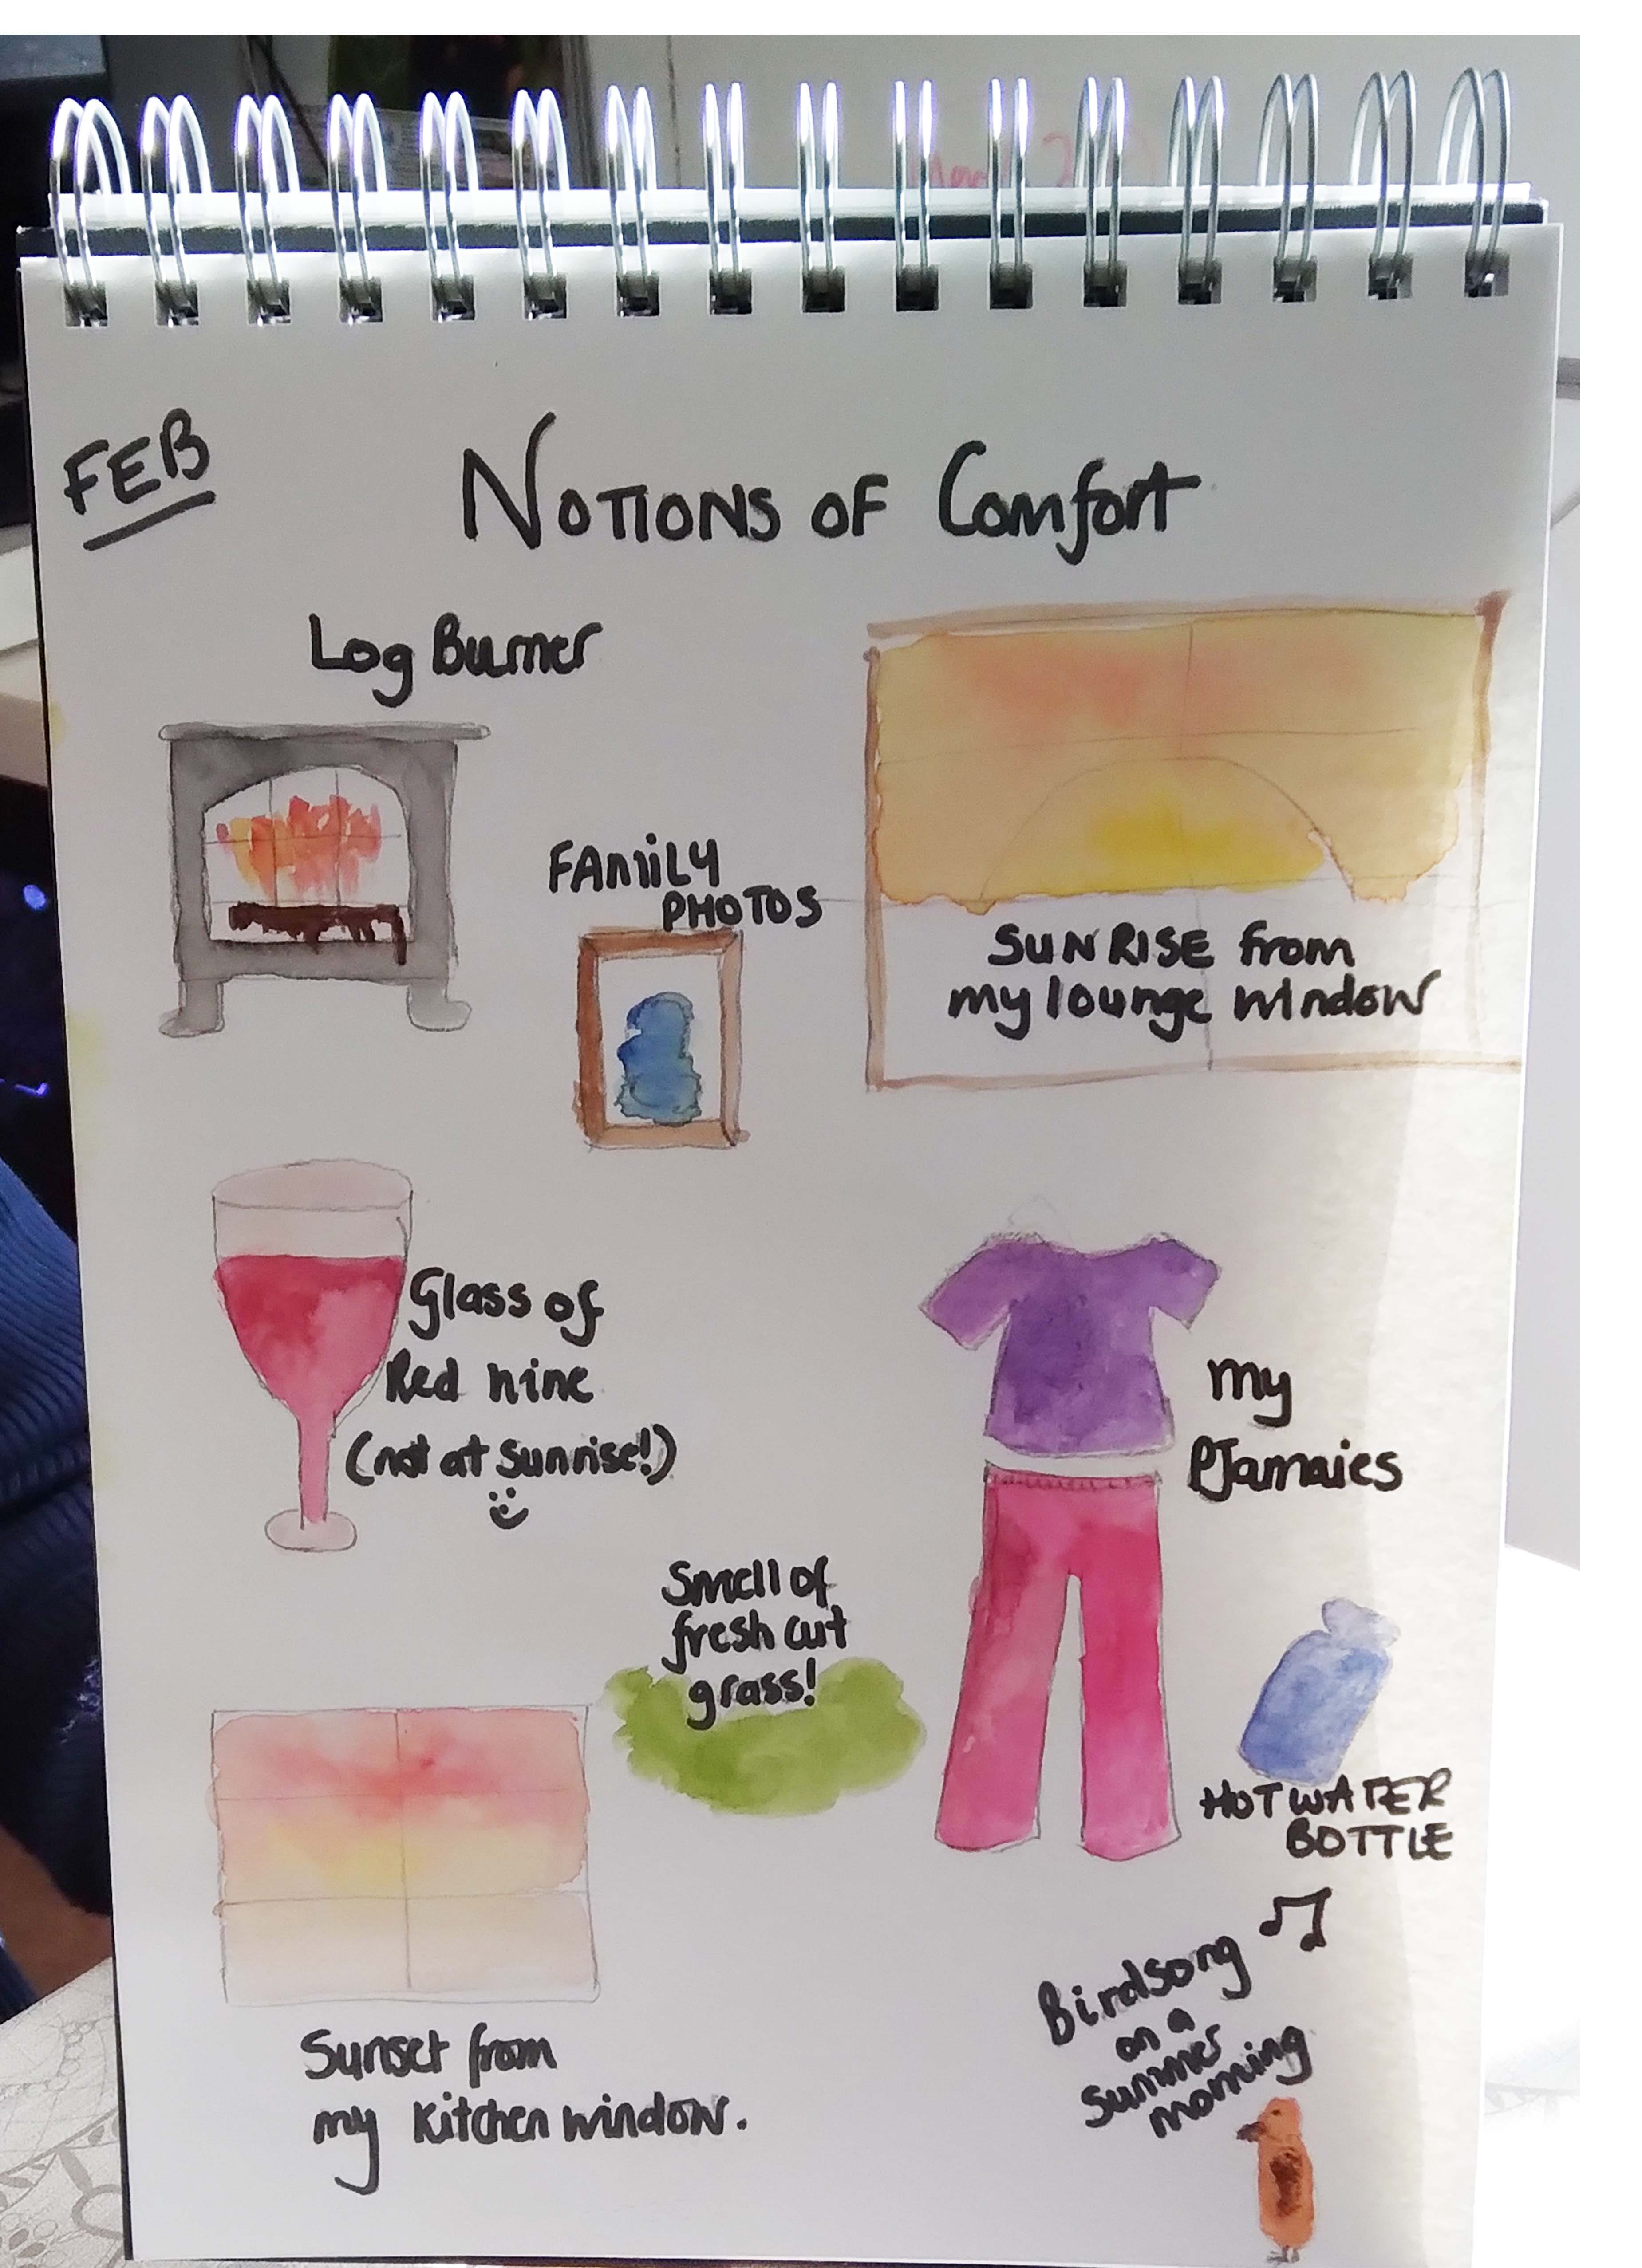 FEB
Notions of Comfort
Log Burner
FAMILY
PHOTOS
SUNRISE from
my lounge window
Glass of
Red wine
(not at sunrise!)
my
PJamaies
Smell of
fresh cut
grass!
HOT WATER
BOTTLE
Birdsong
on a
summer
morning
Sunset from
my kitchen window.